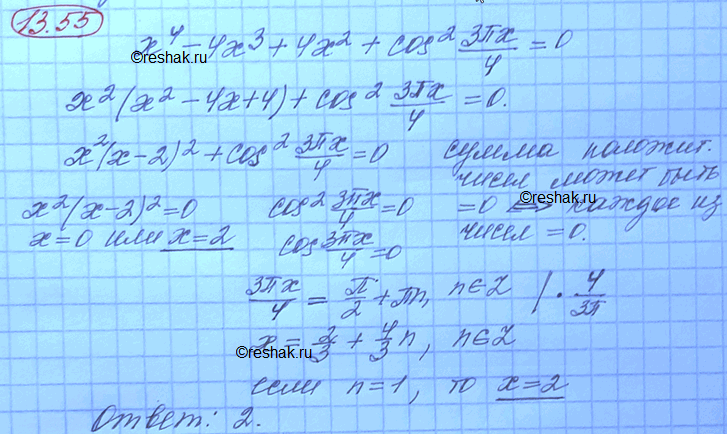 13.55
x⁴ - 4x³ + 4x² + cos² 3πx/4 = 0
©reshak.ru
x²(x² - 4x + 4) + cos² 3πx/4 = 0.
x²(x-2)² + cos² 3πx/4 = 0 сумма положит.
чисел может быть
x²(x-2)² = 0 cos² 3πx/4 = 0 = 0 ⟺ каждое из
©reshak.ru
x = 0 или x = 2 cos 3πx/4 = 0 чисел = 0.
3πx/4 = π/2 + πn, n∈Z | · 4/3π
x = 2/3 + 4/3 n, n∈Z
©reshak.ru
если n = 1, то x = 2
Ответ: 2.